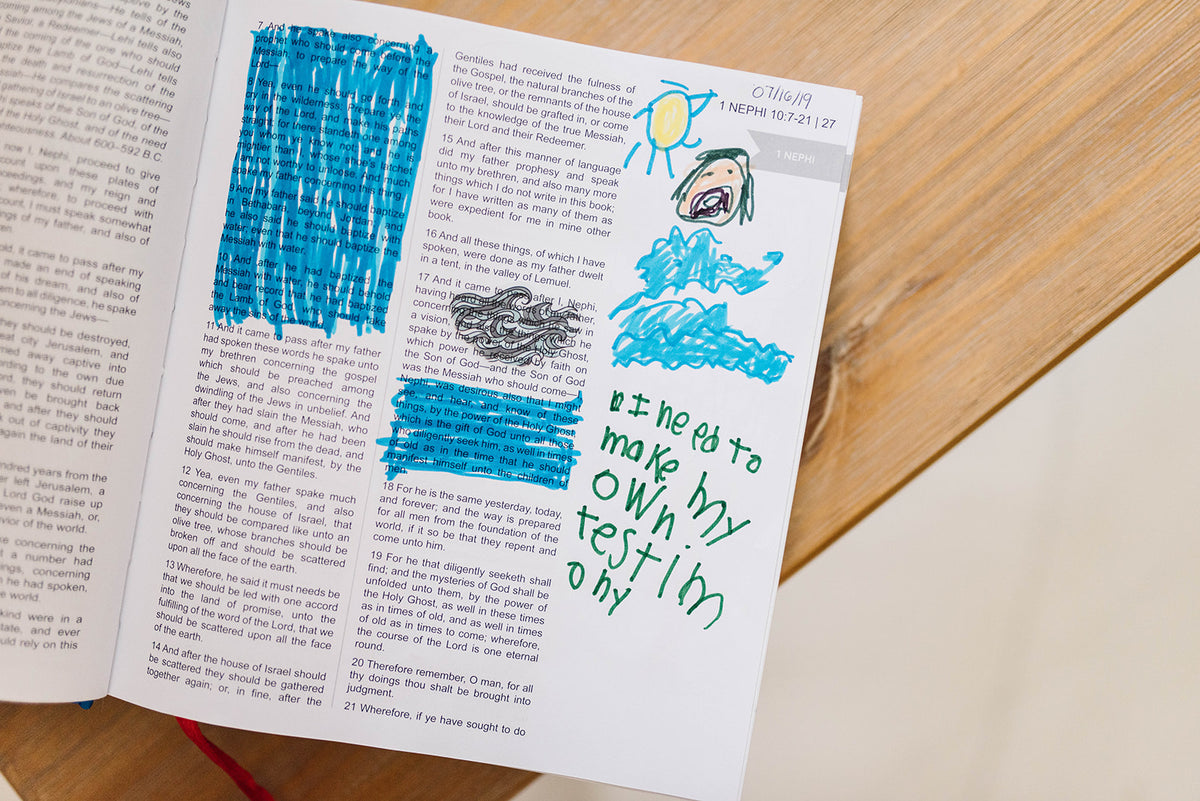 onians—He tells of the
coming among the Jews of a Messiah,
Savior, a Redeemer—Lehi tells also
the coming of the one who should
ptize the Lamb of God—Lehi tells
the death and resurrection of the
siah—He compares the scattering
gathering of Israel to an olive tree—
hi speaks of the Son of God, of the
Holy Ghost, and of the need
hteousness. About 600–592 B.C.
now I, Nephi, proceed to give
count upon these plates of
oceedings, and my reign and
wherefore, to proceed with
count, I must speak somewhat
ngs of my father, and also of
old, it came to pass after my
made an end of speaking
of his dream, and also of
em to all diligence, he spake
oncerning the Jews—
they should be destroyed,
eat city Jerusalem, and
rned away captive into
ording to the own due
ord, they should return
ven be brought back
and after they should
out of captivity they
again the land of their
undred years from the
er left Jerusalem, a
Lord God raise up
even a Messiah, or,
vior of the world.
ke concerning the
t a number had
ngs, concerning
he had spoken,
e world.
kind were in a
state, and ever
uld rely on this
7 And he spake also concerning a
prophet who should come before the
Messiah, to prepare the way of the
Lord—
8 Yea, even he should go forth and
cry in the wilderness: Prepare ye the
way of the Lord, and make his paths
straight; for there standeth one among
you whom ye know not; and he is
mightier than I, whose shoe's latchet
I am not worthy to unloose. And much
spake my father concerning this thing.
9 And my father said he should baptize
in Bethabara, beyond Jordan; and
he also said he should baptize with
water; even that he should baptize the
Messiah with water.
10 And after he had baptized the
Messiah with water, he should behold
and bear record that he had baptized
the Lamb of God, who should take
away the sins of the world.
11 And it came to pass after my father
had spoken these words he spake unto
my brethren concerning the gospel
which should be preached among
the Jews, and also concerning the
dwindling of the Jews in unbelief. And
after they had slain the Messiah, who
should come, and after he had been
slain he should rise from the dead, and
should make himself manifest, by the
Holy Ghost, unto the Gentiles.
12 Yea, even my father spake much
concerning the Gentiles, and also
concerning the house of Israel, that
they should be compared like unto an
olive tree, whose branches should be
broken off and should be scattered
upon all the face of the earth.
13 Wherefore, he said it must needs be
that we should be led with one accord
into the land of promise, unto the
fulfilling of the word of the Lord, that we
should be scattered upon all the face
of the earth.
14 And after the house of Israel should
be scattered they should be gathered
together again; or, in fine, after the
Gentiles had received the fulness of
the Gospel, the natural branches of the
olive tree, or the remnants of the house
of Israel, should be grafted in, or come
to the knowledge of the true Messiah,
their Lord and their Redeemer.
15 And after this manner of language
did my father prophesy and speak
unto my brethren, and also many more
things which I do not write in this book;
for I have written as many of them as
were expedient for me in mine other
book.
16 And all these things, of which I have
spoken, were done as my father dwelt
in a tent, in the valley of Lemuel.
17 And it came after I, Nephi,
having words of my father,
concerning in
a vision, he
spake by the power of the Ghost,
which power he received by faith on
the Son of God—and the Son of God
was the Messiah who should come—I,
Nephi, was desirous also that I might
see, and hear, and know of these
things, by the power of the Holy Ghost,
which is the gift of God unto all those
who diligently seek him, as well in times
of old as in the time that he should
manifest himself unto the children of
men.
18 For he is the same yesterday, today,
and forever; and the way is prepared
for all men from the foundation of the
world, if it so be that they repent and
come unto him.
19 For he that diligently seeketh shall
find; and the mysteries of God shall be
unfolded unto them, by the power of
the Holy Ghost, as well in these times
as in times of old, and as well in times
of old as in times to come; wherefore,
the course of the Lord is one eternal
round.
20 Therefore remember, O man, for all
thy doings thou shalt be brought into
judgment.
21 Wherefore, if ye have sought to do
07/16/19
1 NEPHI 10:7-21 | 27
1 NEPHI
I need to
make my
own
testim
ony